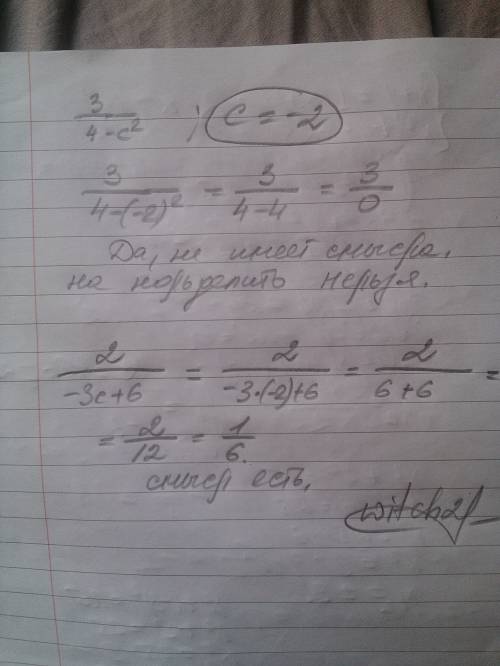 3/(4-c²) ; c = -2
3/(4-(-2)²) = 3/(4-4) = 3/0
Да, не имеет смысла,
на нольделить нельзя.
2/(-3c+6) = 2/(-3·(-2)+6) = 2/(6+6) =
= 2/12 = 1/6.
смысл есть,